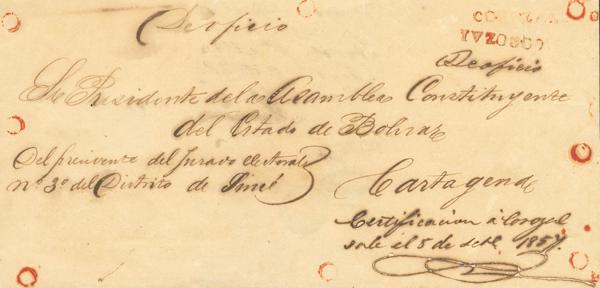 De oficio
De oficio
Sr Presidente de la Asamblea Constituyente
del Estado de Bolivar
Del presidente del Jurado electoral
nº 3º del Distrito de Sincé
Cartagena
Certificacion á Corozal
sale el 5 de setbe 1857.